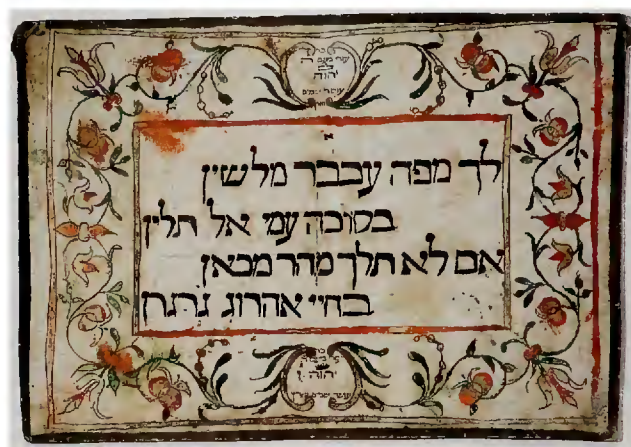 יהוה
לך מפה עכבר מלשין
בסוכה עמי אל תלין
אם לא תלך מהר מכאן
בחיי אהרוג
יהוה